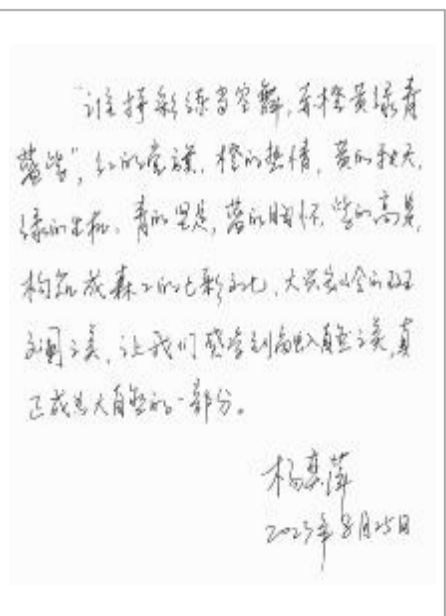 "谁持彩练当空舞,赤橙黄绿青
蓝紫",红的党旗,橙的热情,黄的秋天,
绿的生机,青的,蓝的胸怀,紫的高贵,
构筑成森工的七彩文化,大兴安岭的
斓之美,让我们感受到融入自然之美,真
正成为大自然的一部分。
杨奕萍
2023年8月25日